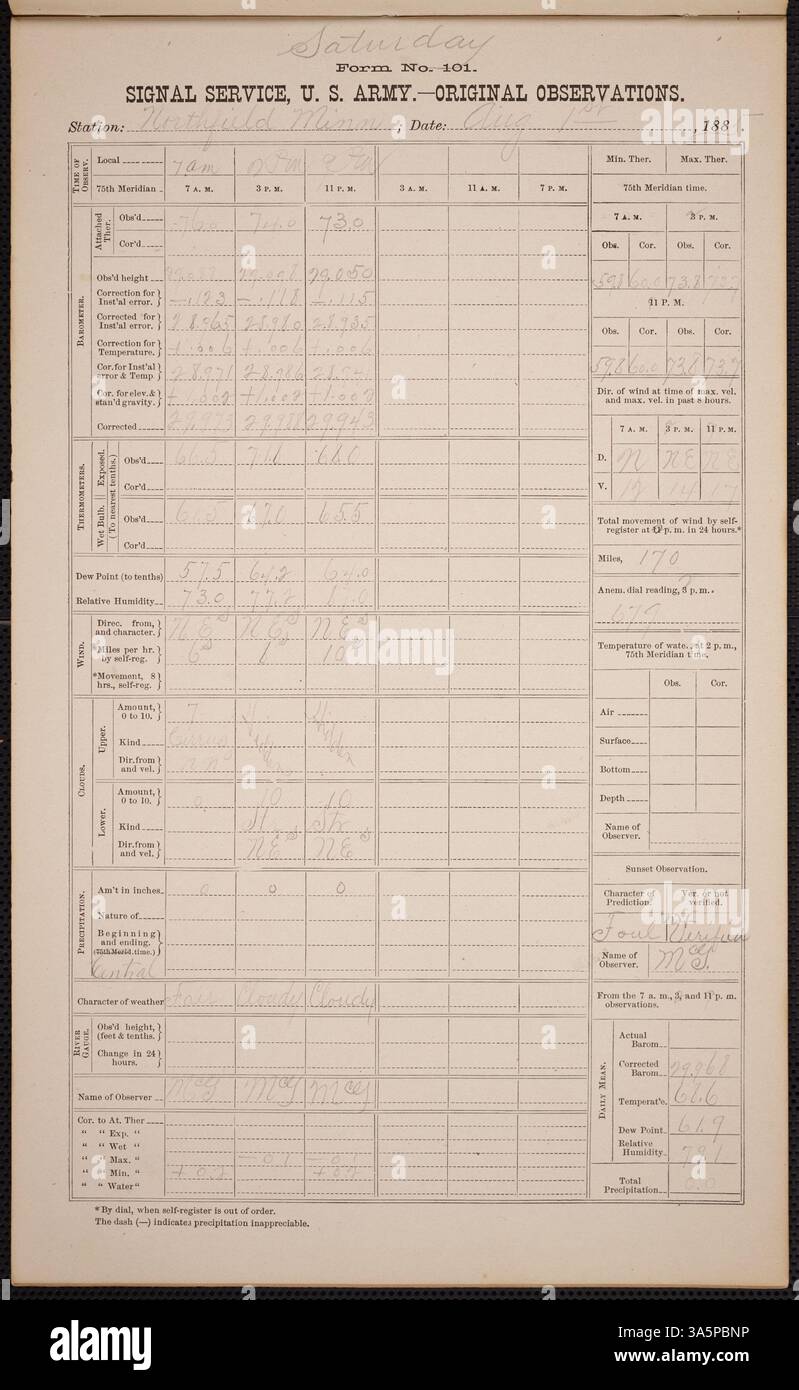 Saturday
Form No. 101.
SIGNAL SERVICE, U. S. ARMY.—ORIGINAL OBSERVATIONS.
Station: Northfield Minn; Date: Aug 1st, 188
TIME OF OBSERV.
Local 7 am
75th Meridian 7 A. M. 3 P. M. 11 P. M. 3 A. M. 11 A. M. 7 P. M.
BAROMETER.
Attached Ther.
Obs'd 76.0 74.0 73.0
Cor'd
Obs'd height 29.088 29.098 29.050
Correction for Inst'al error. —.123 —.118 —.115
Corrected for Inst'al error. 28.965 28.980 28.935
Correction for Temperature. +.006 +.006 +.006
Cor. for Inst'al error & Temp 28.971 28.986 28.941
Cor. for elev. & stan'd gravity. +1.002 +1.002 +1.002
Corrected 29.973 29.988 29.943
THERMOMETERS.
(To nearest tenths.)
Exposed.
Obs'd 71.1 68.0
Cor'd
Wet Bulb.
Obs'd 65.5
Cor'd
Dew Point (to tenths) 57.5 64.2 64.0
Relative Humidity 73.0 77.2
WIND.
Direc. from, and character. NE NE NE
*Miles per hr. by self-reg. 6 10
*Movement, 8 hrs., self-reg.
CLOUDS.
Upper.
Amount, 0 to 10. 7
Kind Cirrus
Dir. from and vel.
Lower.
Amount, 0 to 10. 0 10 10
Kind St Str
Dir. from and vel. NE NE
PRECIPITATION.
Am't in inches. 0 0 0
Nature of
Beginning and ending. (75th Merid. time.)
Central
Character of weather Fair Cloudy Cloudy
RIVER GAUGE.
Obs'd height, (feet & tenths.)
Change in 24 hours.
Name of Observer McG McG McG
Cor. to At. Ther
" " Exp. "
" " Wet "
" " Max. " —0.1 —0.1
" " Min. " +0.2 +0.2
" " Water "
*By dial, when self-register is out of order.
The dash (—) indicates precipitation inappreciable.
Min. Ther. Max. Ther.
75th Meridian time.
7 A. M. 3 P. M.
Obs. Cor. Obs. Cor.
59.8 60.0 73.8 73.7
11 P. M.
Obs. Cor. Obs. Cor.
59.8 60.0 73.8 73.7
Dir. of wind at time of max. vel. and max. vel. in past 8 hours.
7 A. M. 3 P. M. 11 P. M.
D. N NE NE
V. 12 14 17
Total movement of wind by self-register at p. m. in 24 hours.*
Miles, 170
Anem. dial reading, 3 p. m.
679
Temperature of water, at 2 p. m., 75th Meridian time.
Obs. Cor.
Air
Surface
Bottom
Depth
Name of Observer.
Sunset Observation.
Character of Prediction. Ver. or not verified.
Foul Verified
Name of Observer. McG.
From the 7 a. m., 3, and 11 p. m. observations.
DAILY MEAN.
Actual Barom
Corrected Barom 29.968
Temperat'e. 68.6
Dew Point 61.9
Relative Humidity 79.1
Total Precipitation 0.0
alamy
Image ID: 3A5PBNP
www.alamy.com